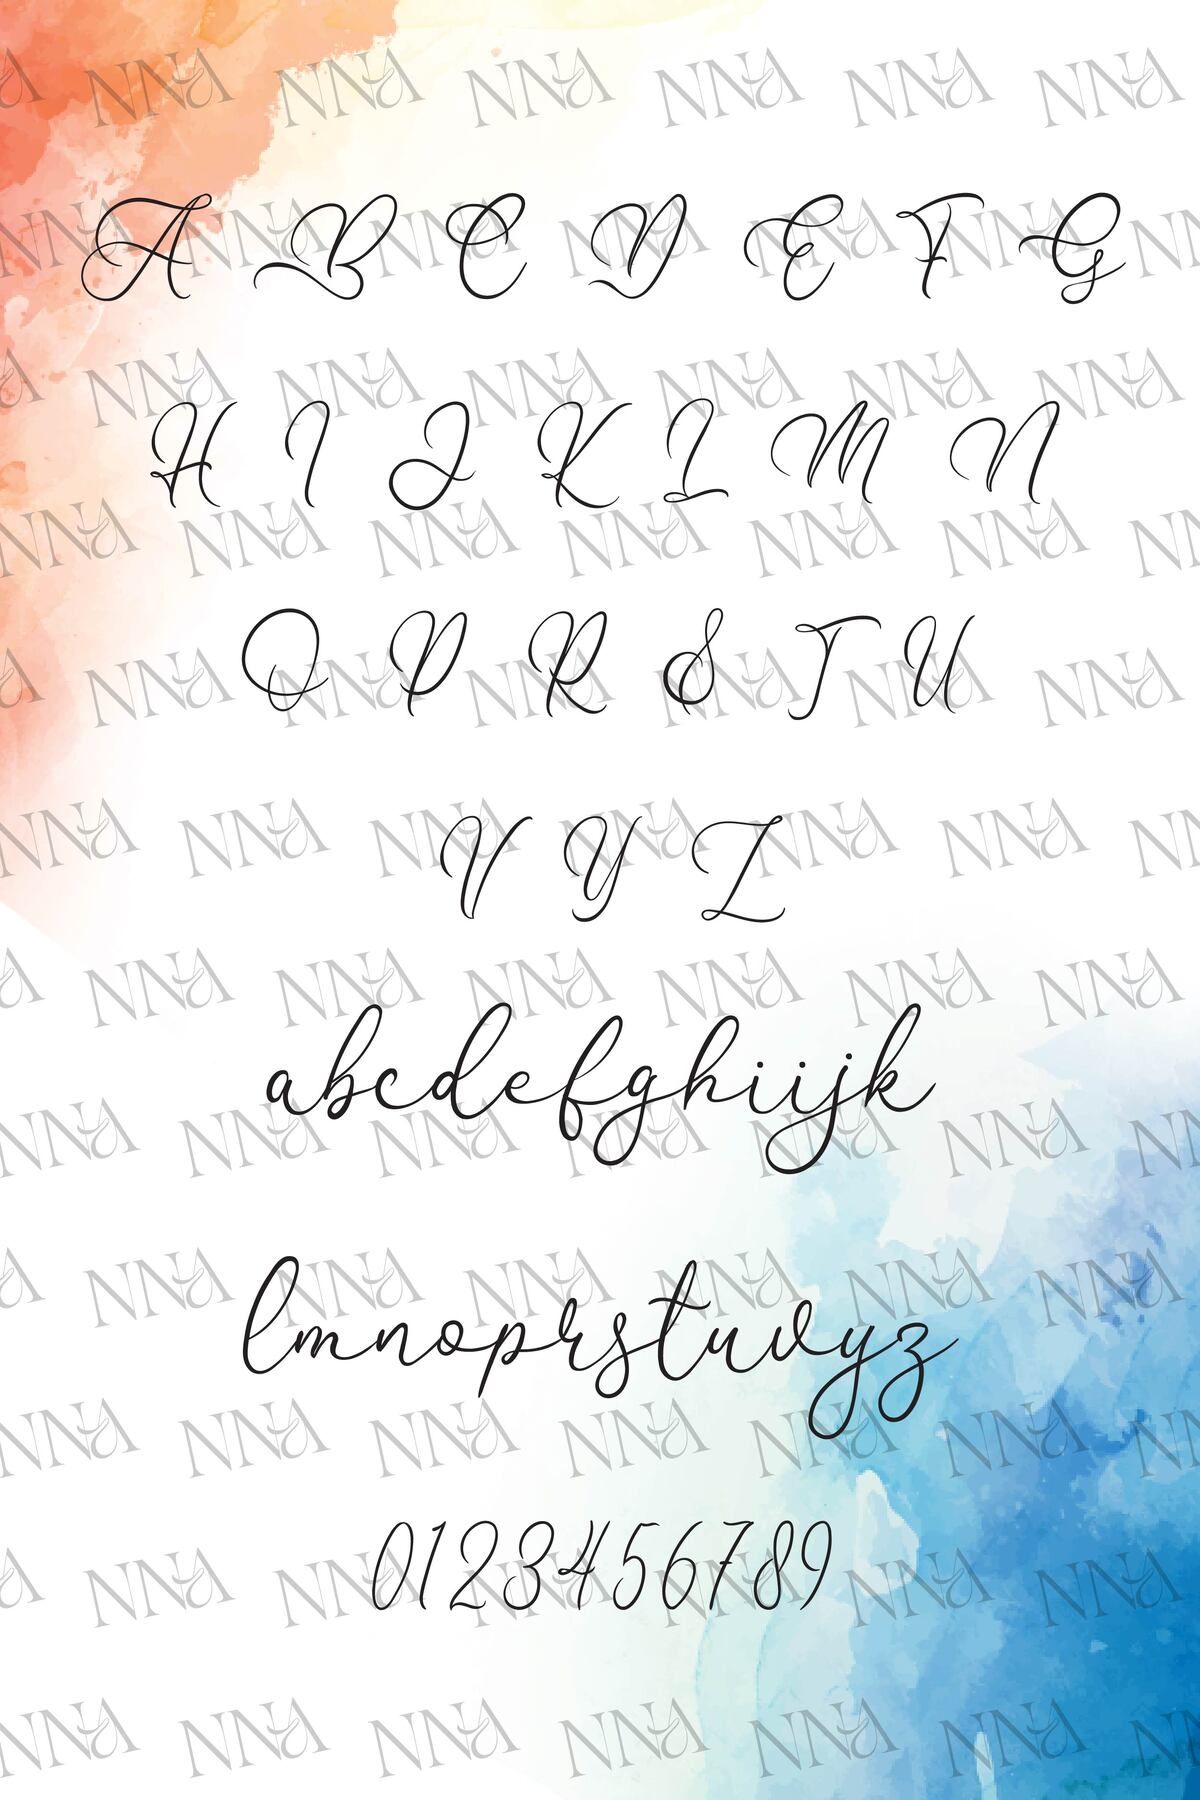 A B C D E F G
H I J K L M N
O P R S T U
V Y Z
abcdefghiijk
lmnoprstuvyz
0123456789